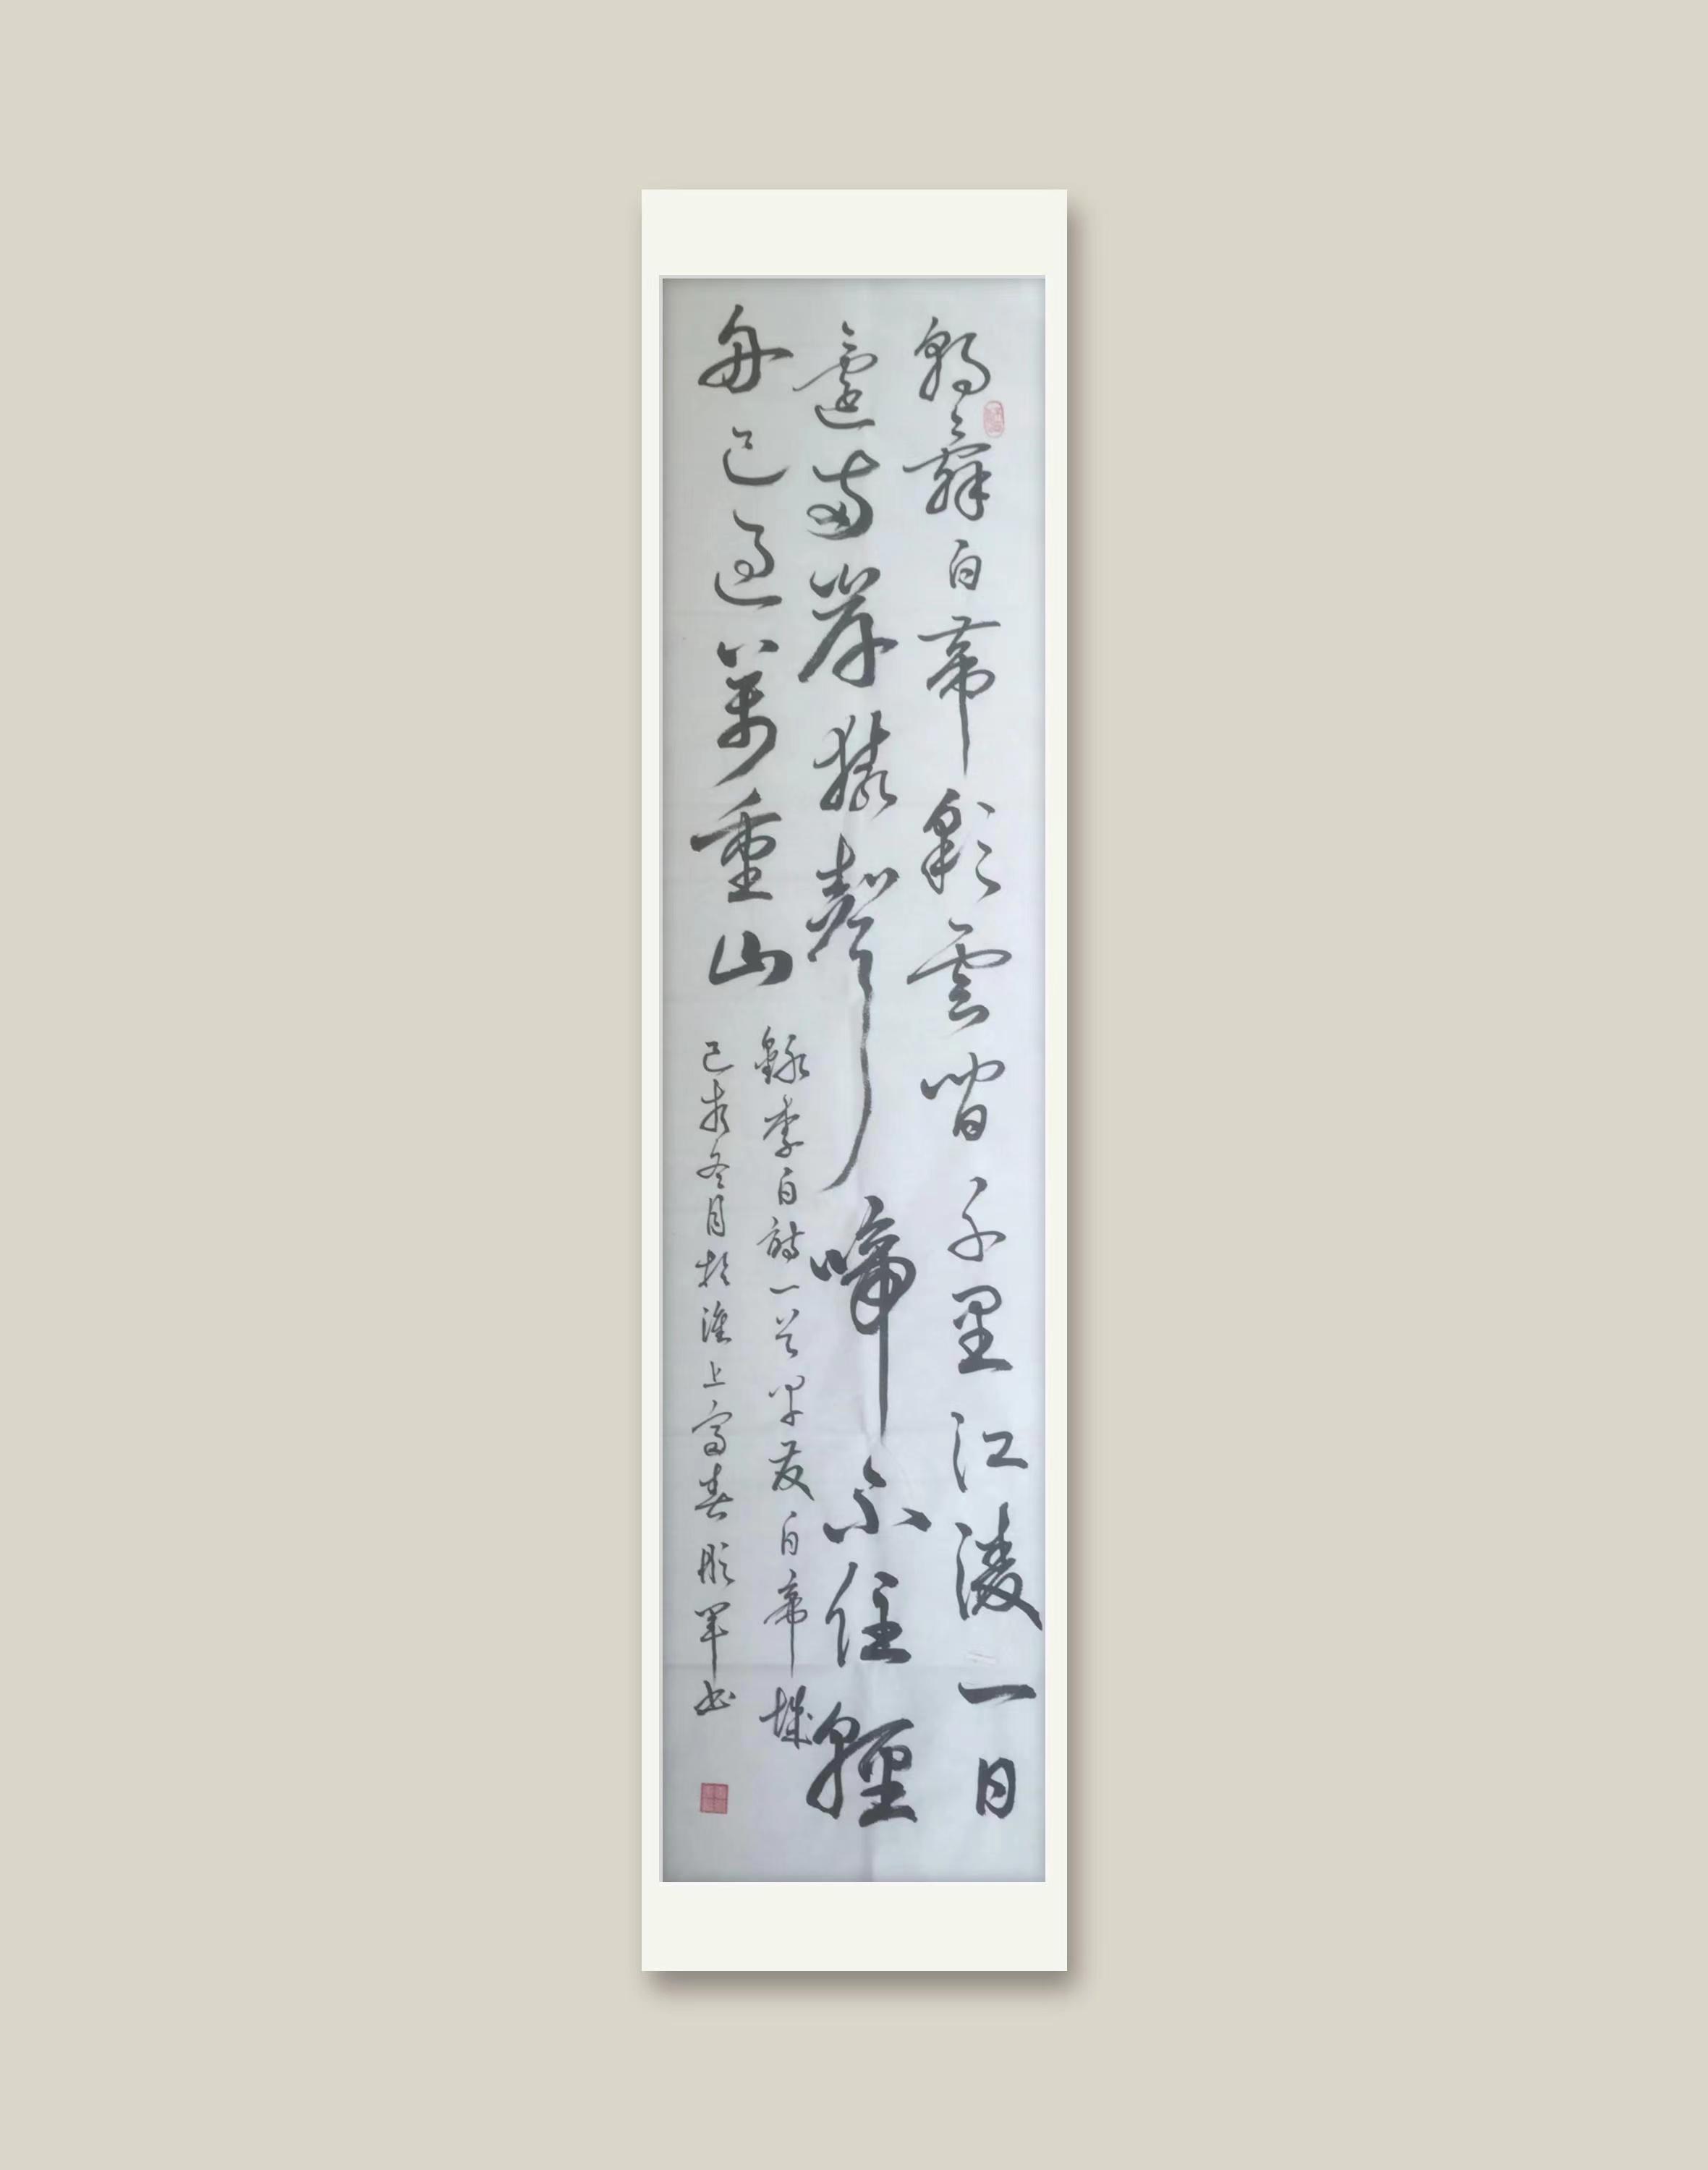 朝辭白帝彩雲間千里江陵一日
還兩岸猿聲啼不住輕
舟已過萬重山
錄李白詩一首早發白帝城
己亥冬月於淮上 軍书